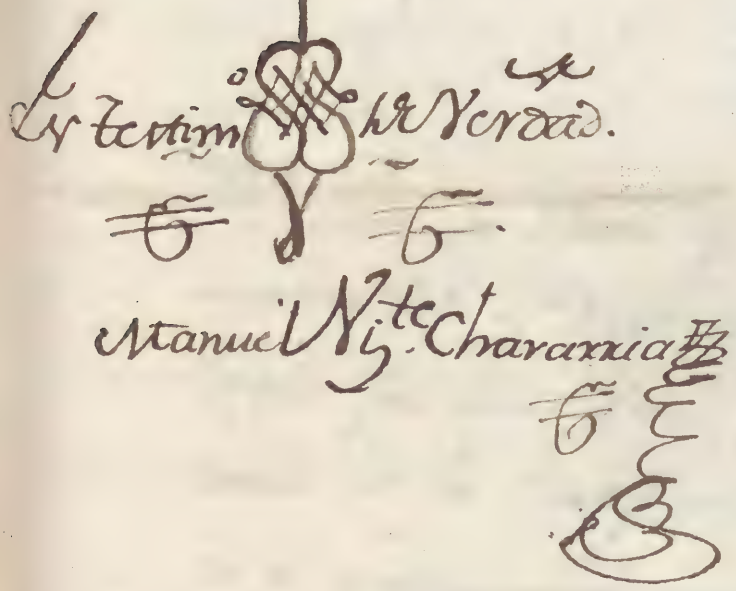 En testim de Verdad.
Manuel Vizte Chavarria